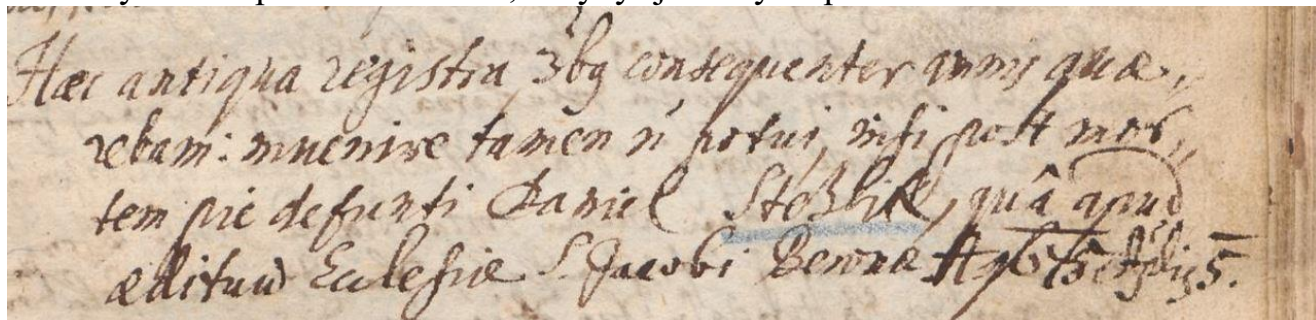 Hæc antiqua registra 3bꝗ consequenter annis quæ„
rebam: invenire tamen ñ potui, nisi post mor„
tem pie defunti Daniel Stoßhik, quâ apud
ædituũ Ecclesiæ S. Jacobi Beronæ